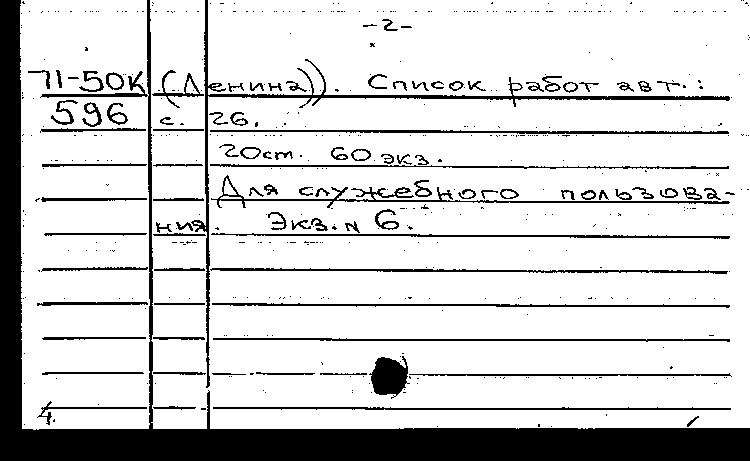 -2-
71-50К (Ленина)). Список работ авт.:
596 с. 26.
20см. 60 экз.
Для служебного пользова-
ния. Экз. N 6.
4.